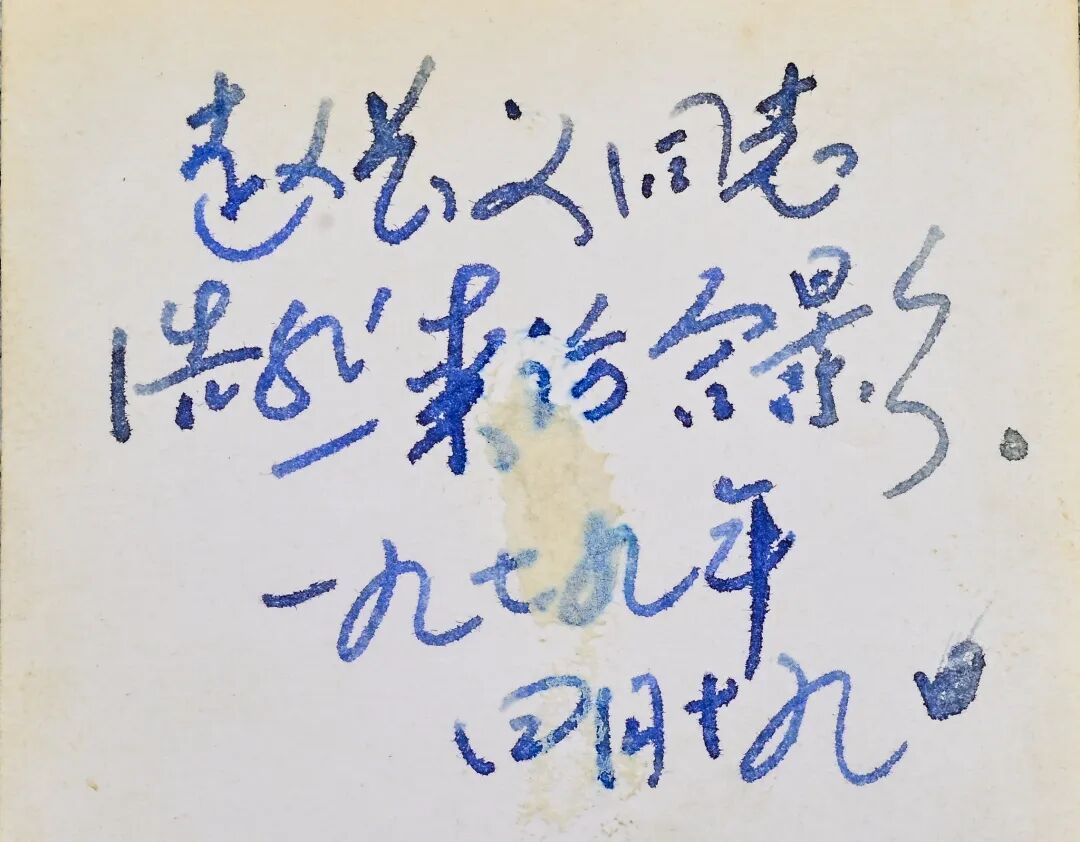 赵义同志
浩然来访合影.
一九七九年
四月十九